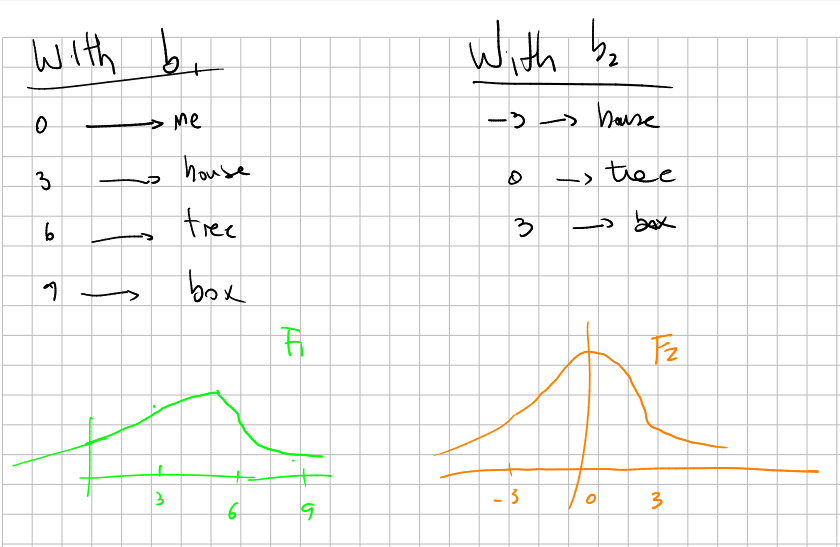 With b₁
0 → me
3 → house
6 → tree
9 → box
With b₂
-3 → house
0 → tree
3 → box
F₁
3 6 9
F₂
-3 0 3